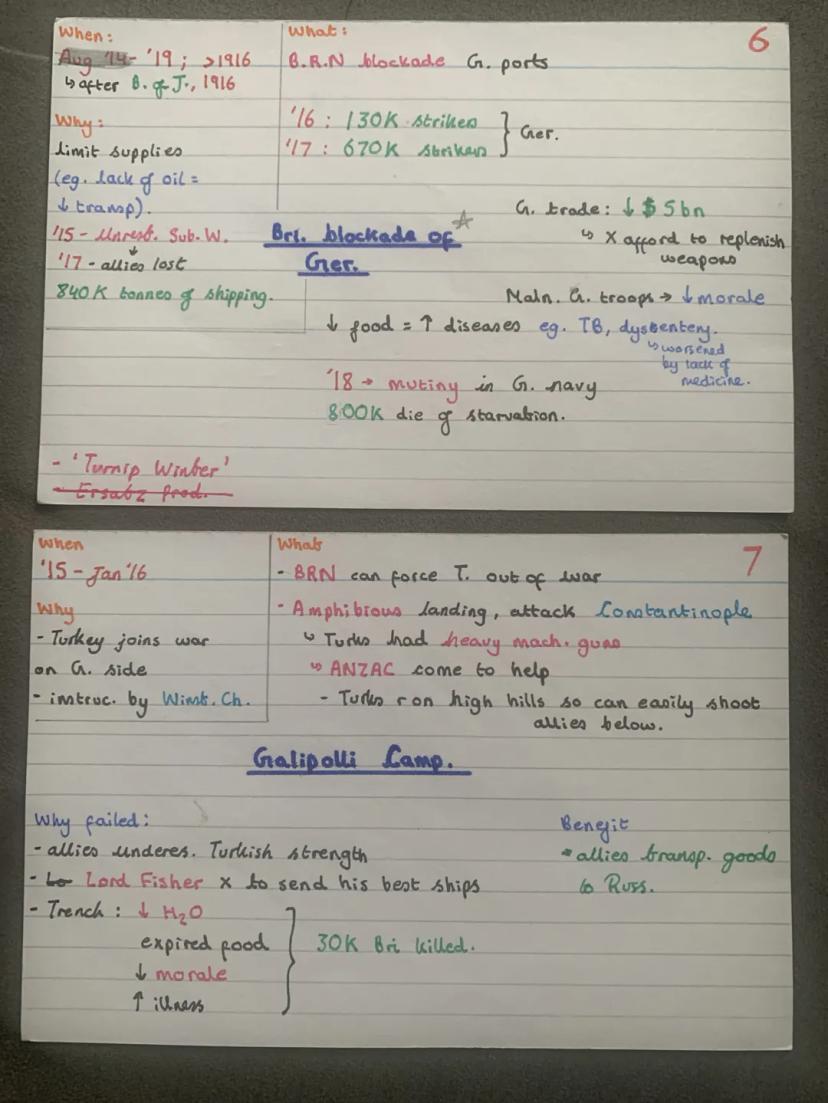 6
When:
Aug '14 - '19 ; >1916
↳ after B. of J., 1916
Why:
limit supplies
(eg. lack of oil =
↓ transp).
'15 - Unrest. Sub. W.
↓
'17 - allies lost
840K tonnes of shipping.
What:
B.R.N blockade G. ports
'16 : 130K strikes
'17 : 670K strikes } Ger.
Bri. blockade of
Ger.
G. trade: ↓ $5bn
↳ X afford to replenish
weapons
Maln. G. troops → ↓ morale
↓ food = ↑ diseases eg. TB, dysbentery.
↳ worsened
by lack of
medicine.
'18 → mutiny in G. navy
800K die of starvation.
- 'Turnip Winter'
- Ersatz Prod.
7
When
'15 - Jan '16
Why
- Turkey joins war
on G. side
- instruc. by Winst. Ch.
What
- BRN can force T. out of war
- Amphibious landing, attack Constantinople
↳ Turks had heavy mach. guns
↳ ANZAC come to help
- Turks r on high hills so can easily shoot
allies below.
Galipolli Camp.
Why failed:
- allies underes. Turkish strength
- Lo Lord Fisher x to send his best ships
- Trench : ↓ H₂O
expired food
↓ morale
↑ illness
} 30K Bri killed.
Benefit
- allies transp. goods
to Russ.